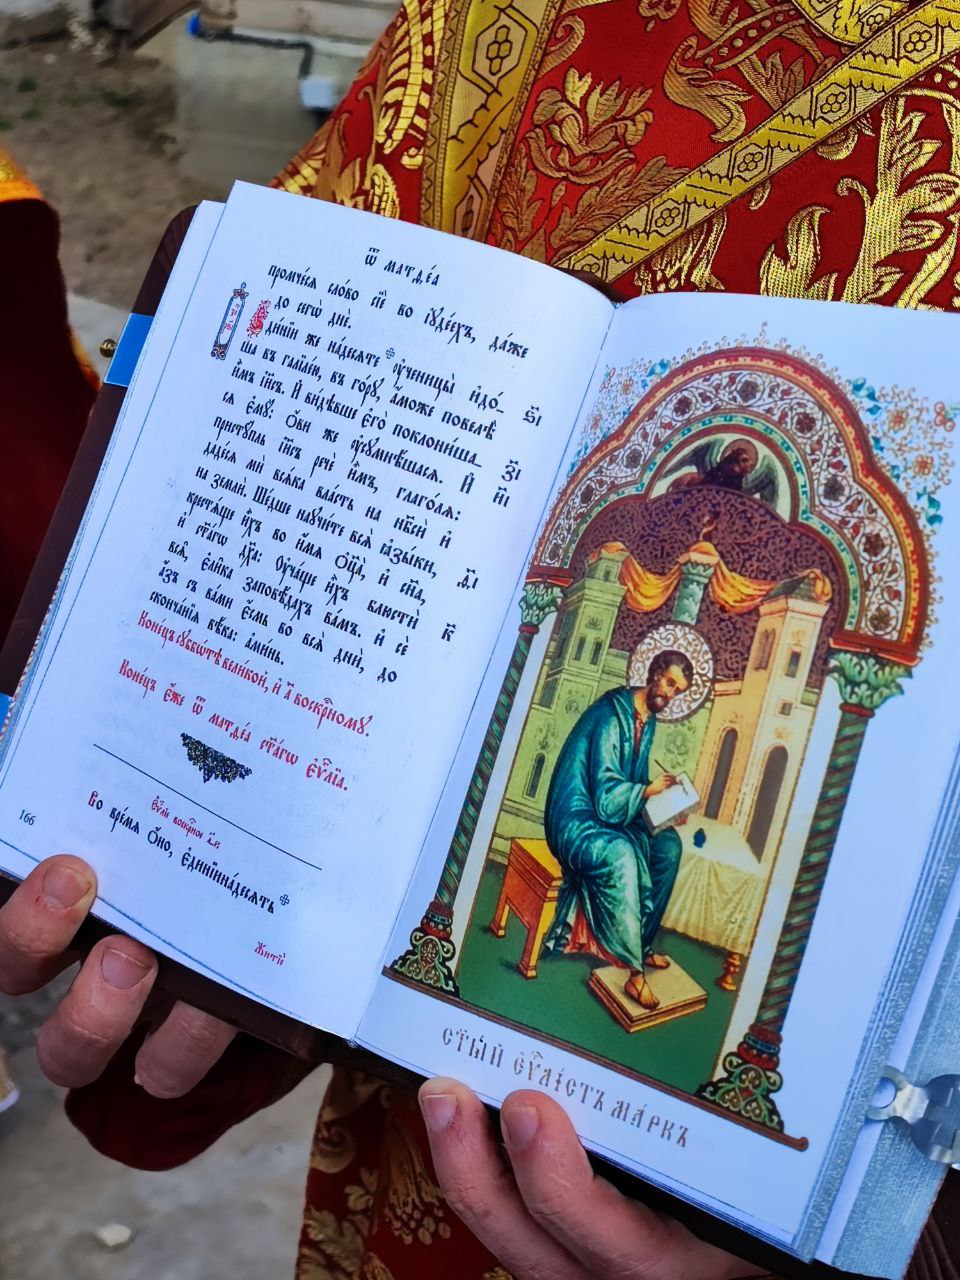 Ѿ матѳе́а
промче́сѧ сло́во сїѐ во і҆ꙋде́ехъ, да́же
до сегѡ̀ днѐ.
Є҆ди́нїи же на́десѧте ᛭ ᲂу҆чєницы̀ и҆до́- ѕ҃і
ша въ галїле́ю, въ го́рꙋ, а҆́може повелѣ̀
и҆̀мъ і҆и҃съ. И҆ ви́дѣвше є҆го̀ поклони́ша- з҃і
сѧ є҆мꙋ̀: ѻ҆́ви же ᲂу҆сꙋмнѣ́шасѧ. И҆ и҃і
пристꙋ́пль і҆и҃съ речѐ и҆̀мъ, глаго́лѧ:
даде́сѧ мѝ всѧ́ка вла́сть на нб҃сѝ и҆
на землѝ. Ше́дше наꙋчи́те всѧ̑ ꙗ҆зы́ки, ѳ҃і
крестѧ́ще и҆̀хъ во и҆́мѧ ѻ҆ц҃а̀, и҆ сн҃а,
и҆ ст҃а́гѡ дх҃а: ᲂу҆ча́ще и҆̀хъ блюстѝ к҃
всѧ̑, є҆ли̑ка заповѣ́дахъ ва́мъ. и҆ сѐ
а҆́зъ съ ва́ми є҆́смь во всѧ̑ дни̑, до
сконча́нїѧ вѣ́ка: а҆ми́нь.
Коне́цъ сꙋббѡ́тѣ вели́кой, и҆ а҃ воскрⷭ҇номꙋ.
Коне́цъ є҆́же ѿ матѳе́а ст҃а́гѡ є҆ѵⷢ҇лїа.
Є҆ѵⷢ҇лїе воскрⷭ҇ное
Во вре́мѧ ѻ҆́но, є҆ди́нїиннадесѧть ᛭
Житїѐ
166
ст҃ы́й є҆ѵⷢ҇лі́стъ ма́ркъ